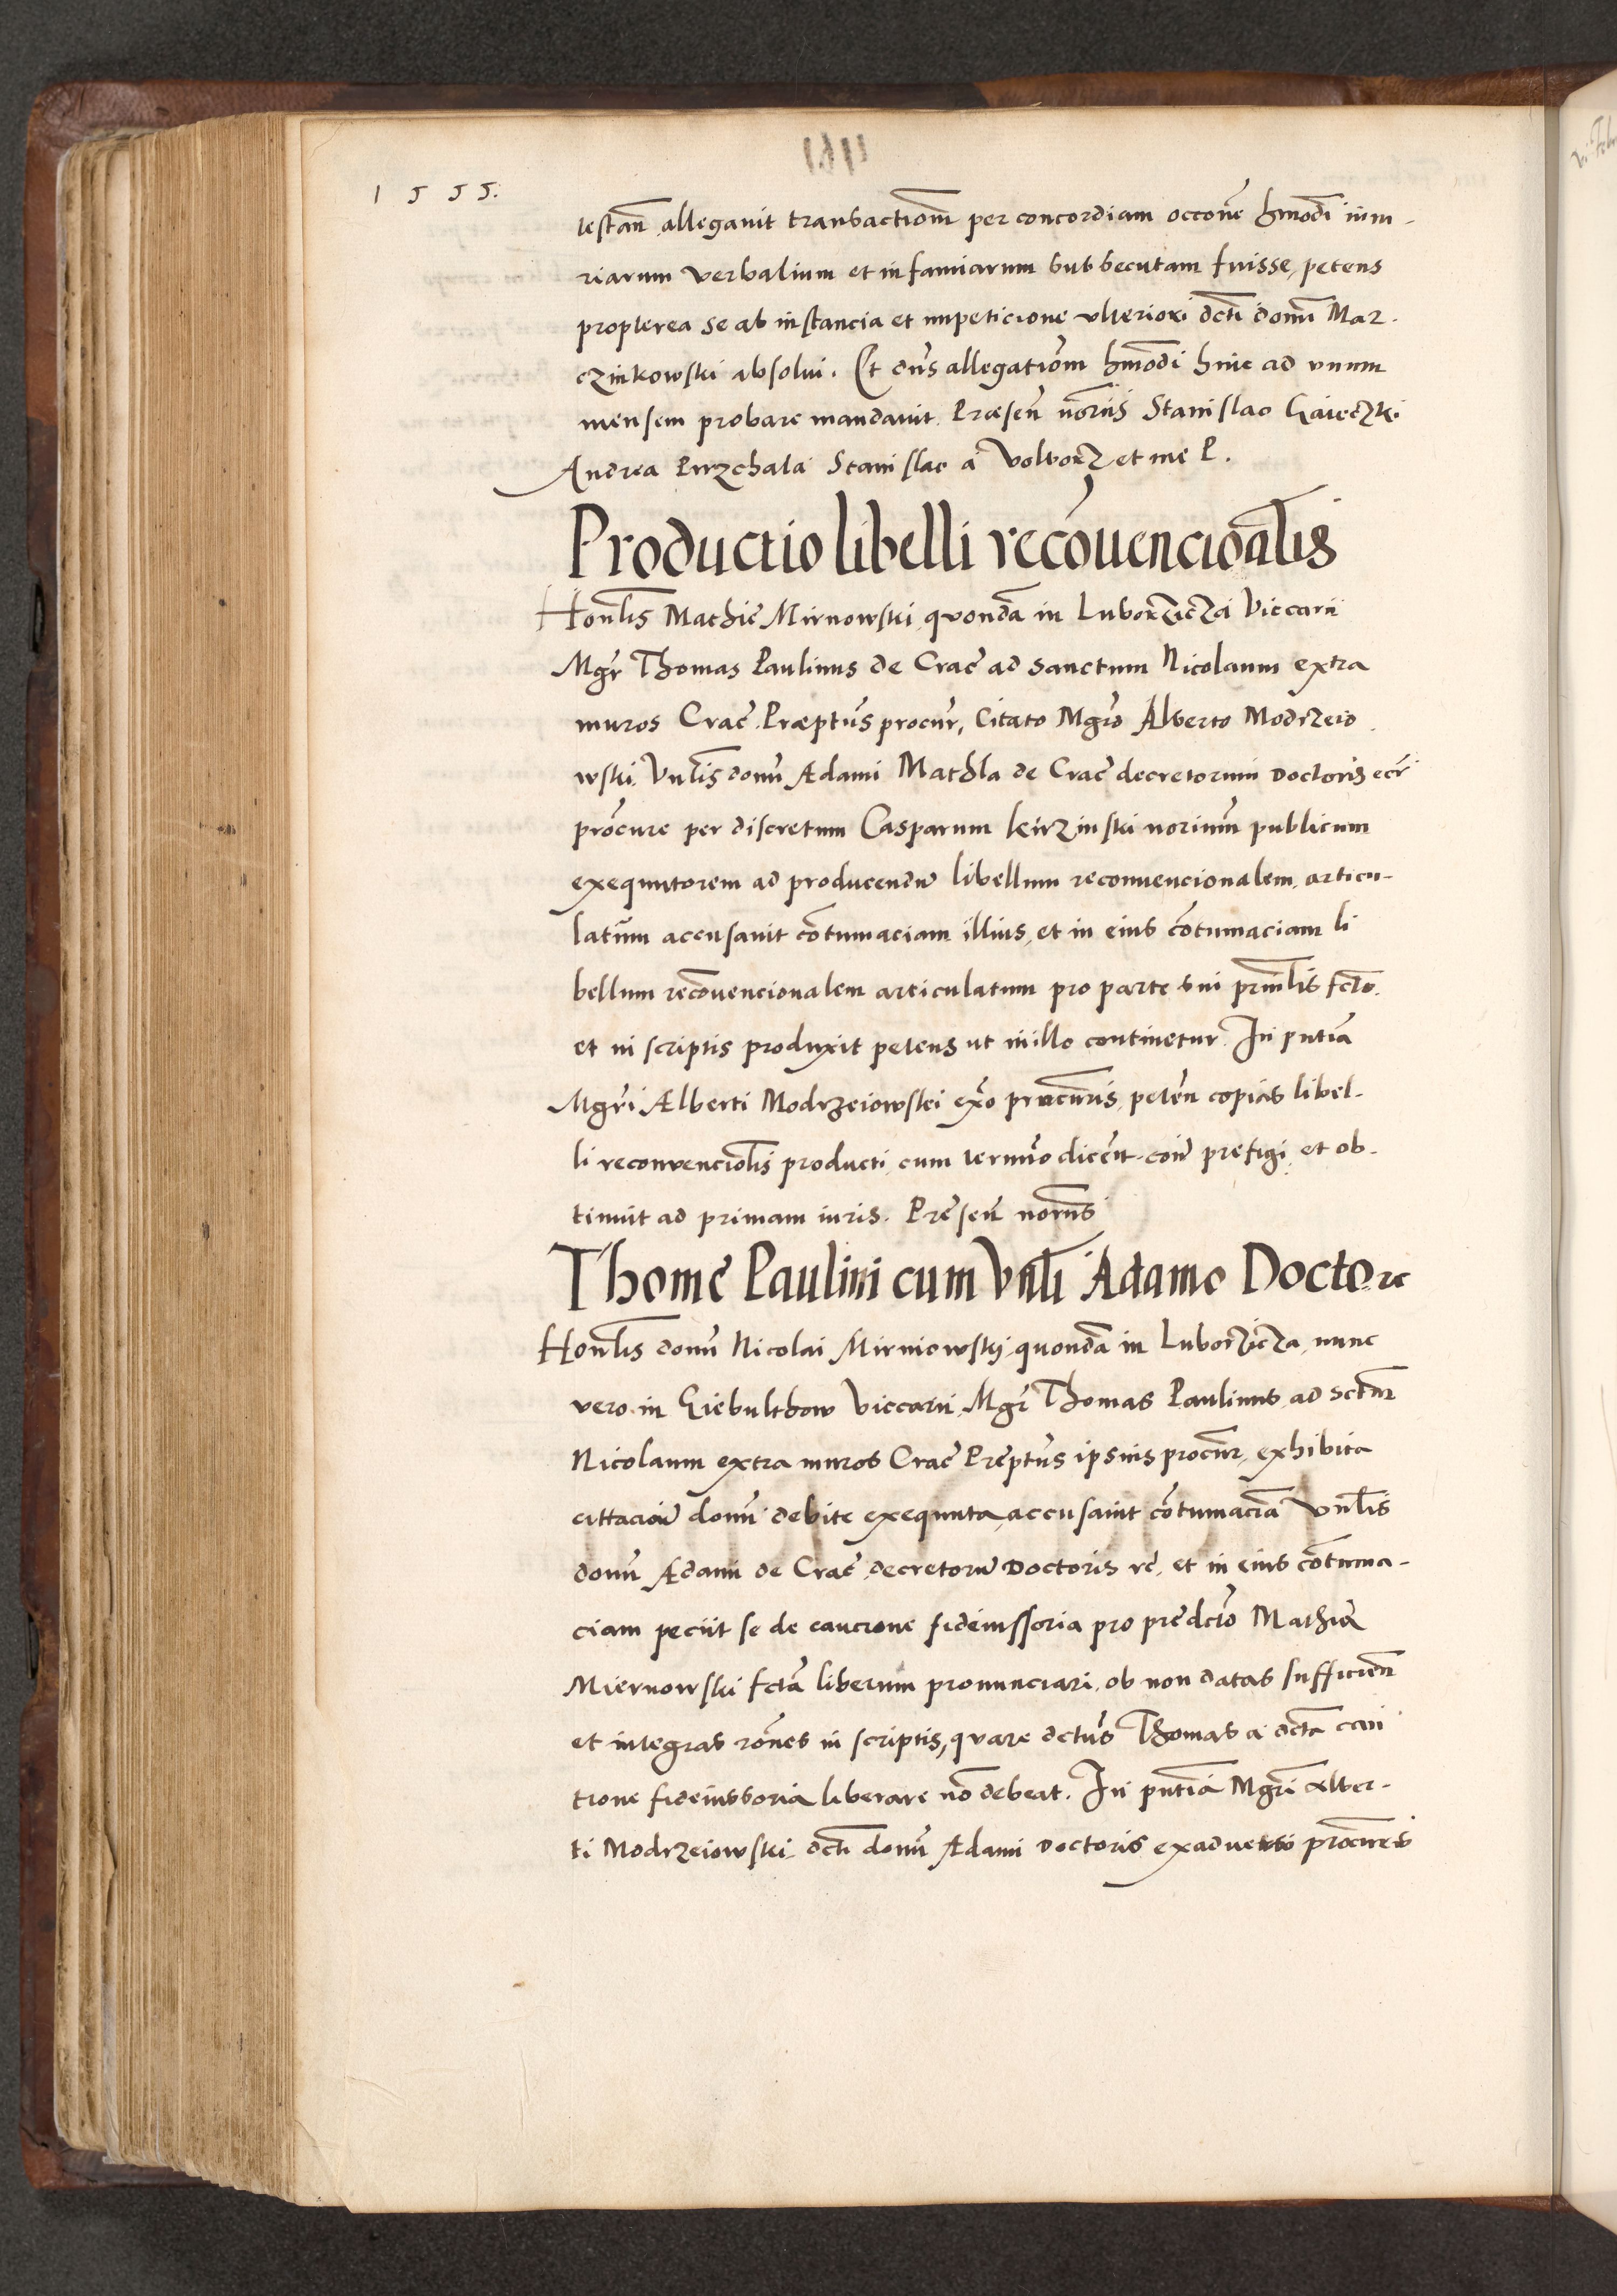 1 5 5 5.
testañ allegauit transactiom̃ per concordiam occoñe hm̃odi iniu-
riarum verbalium et infamiarum subsecutam fuisse, petens
propterea se ab instancia et impeticione vlteriori dcti domñi Mar-
czinkowski absolui. Et dñs allegatiom̃ hm̃odi hinc ad vnum
mensem probare mandauit. Præseñ norĩis Stanislao Gaieczki
Andrea Pirzchala Stanislao a Wolborz et me P.
Productio libelli recõuencionalis
Honl̃is Mathie Mirnowski, quondã in Luborzicza Viccarii
Mgr̃ Thomas Paulinus de Crac̃ ad sanctum Nicolaum extra
muros Crac̃ Præptũs procur̃, Citato Mgrõ Alberto Modrzeio
wski. Vnl̃is domñi Adami Mathla de Crac̃ decretorum Doctoris ecr̃
prõcure per discretum Casparum Kirzinski norium̃ publicum
exequutorem ad producendũ libellum reconuencionalem, articu-
latum accusauit cõtumaciam illius, et in eius cõtumaciam li
bellum recõuencionalem articulatum pro parte sui prinl̃is fctõ
et in scriptis produxit petens ut in illo continetur. In pñtia
Mgrĩ Alberti Modrzeiowski exõ procuris, peteñ copias libel-
li reconvenciol̃is producti, cum termiño diceñt coñ prefigi, et ob-
tinuit ad primam iuris. Preseñ norĩis
Thome Paulini cum Vnl̃i Adamo Doctore
Honl̃is domñi Nicolai Mirniowski, quondã in Luborzicza, nunc
vero in Giebulthow Viccarii, Mgr̃ Thomas Paulinus, ad sctũm
Nicolaum extra muros Crac̃ Preptũs ipsius procur̃, exhibita
cittacioñ domñi debite exequuta, accusauit cõtumaciã Vnl̃is
domñi Adami de Crac̃, decretorũ Doctoris rc̃, et in eius cõtuma-
ciam peciit se de caucione fideiussoria pro predctõ Mathia
Miernowski fctã liberum pronunciari, ob non datas sufficieñ
et integras rõnes in scriptis, quare dctũs Thomas a dctã cau
tione fideiussoria liberare nõ debeat. In pñtia Mgrĩ Alber-
ti Modrzeiowski, dcti domñi Adami Doctoris exaduerso procureis